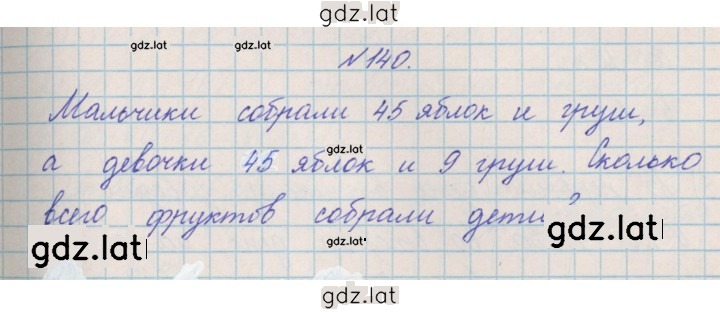 gdz.lat
gdz.lat gdz.lat
№140.
Мальчики собрали 45 яблок и груш,
gdz.lat
а девочки 45 яблок и 9 груш. Сколько
gdz.lat gdz.lat
всего фруктов собрали дети?
gdz.lat gdz.lat gdz.lat
gdz.lat